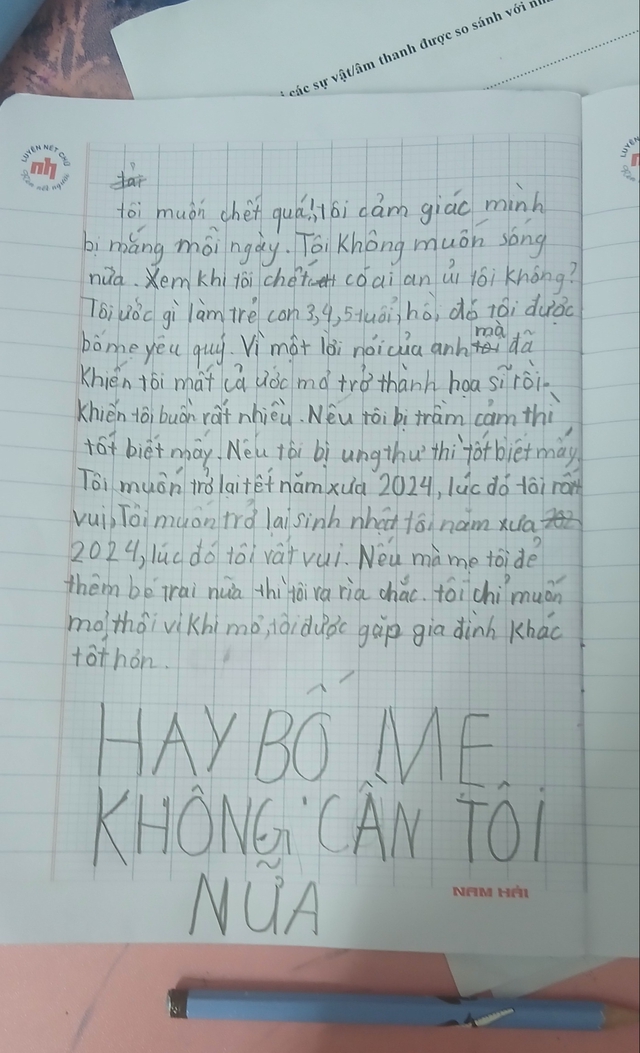 các sự vật/âm thanh được so sánh với
LUYỆN NÉT CHỮ
nh
Rèn nết người
tôi muốn chết quá! tôi cảm giác mình
bị mắng mỗi ngày. Tôi không muốn sống
nữa. Xem khi tôi chết có ai an ủi tôi không?
Tôi ước gì làm trẻ con 3,4,5 tuổi, hồi đó tôi được
bố mẹ yêu quý. Vì một lời nói của anh mà đã
khiến tôi mất cả ước mơ trở thành họa sĩ rồi.
khiến tôi buồn rất nhiều. Nếu tôi bị trầm cảm thì
tốt biết mấy. Nếu tôi bị ung thư thì tốt biết mấy.
Tôi muốn trở lại tết năm xưa 2024, lúc đó tôi rất
vui, Tôi muốn trở lại sinh nhật tôi năm xưa
2024, lúc đó tôi rất vui. Nếu mà mẹ tôi đẻ
thêm bé trai nữa thì tôi ra rìa chắc. tôi chỉ muốn
mơ thôi vì khi mơ, tôi được gặp gia đình khác
tốt hơn.
HAY BỐ MẸ
KHÔNG CẦN TÔI
NỮA
NAM HẢI